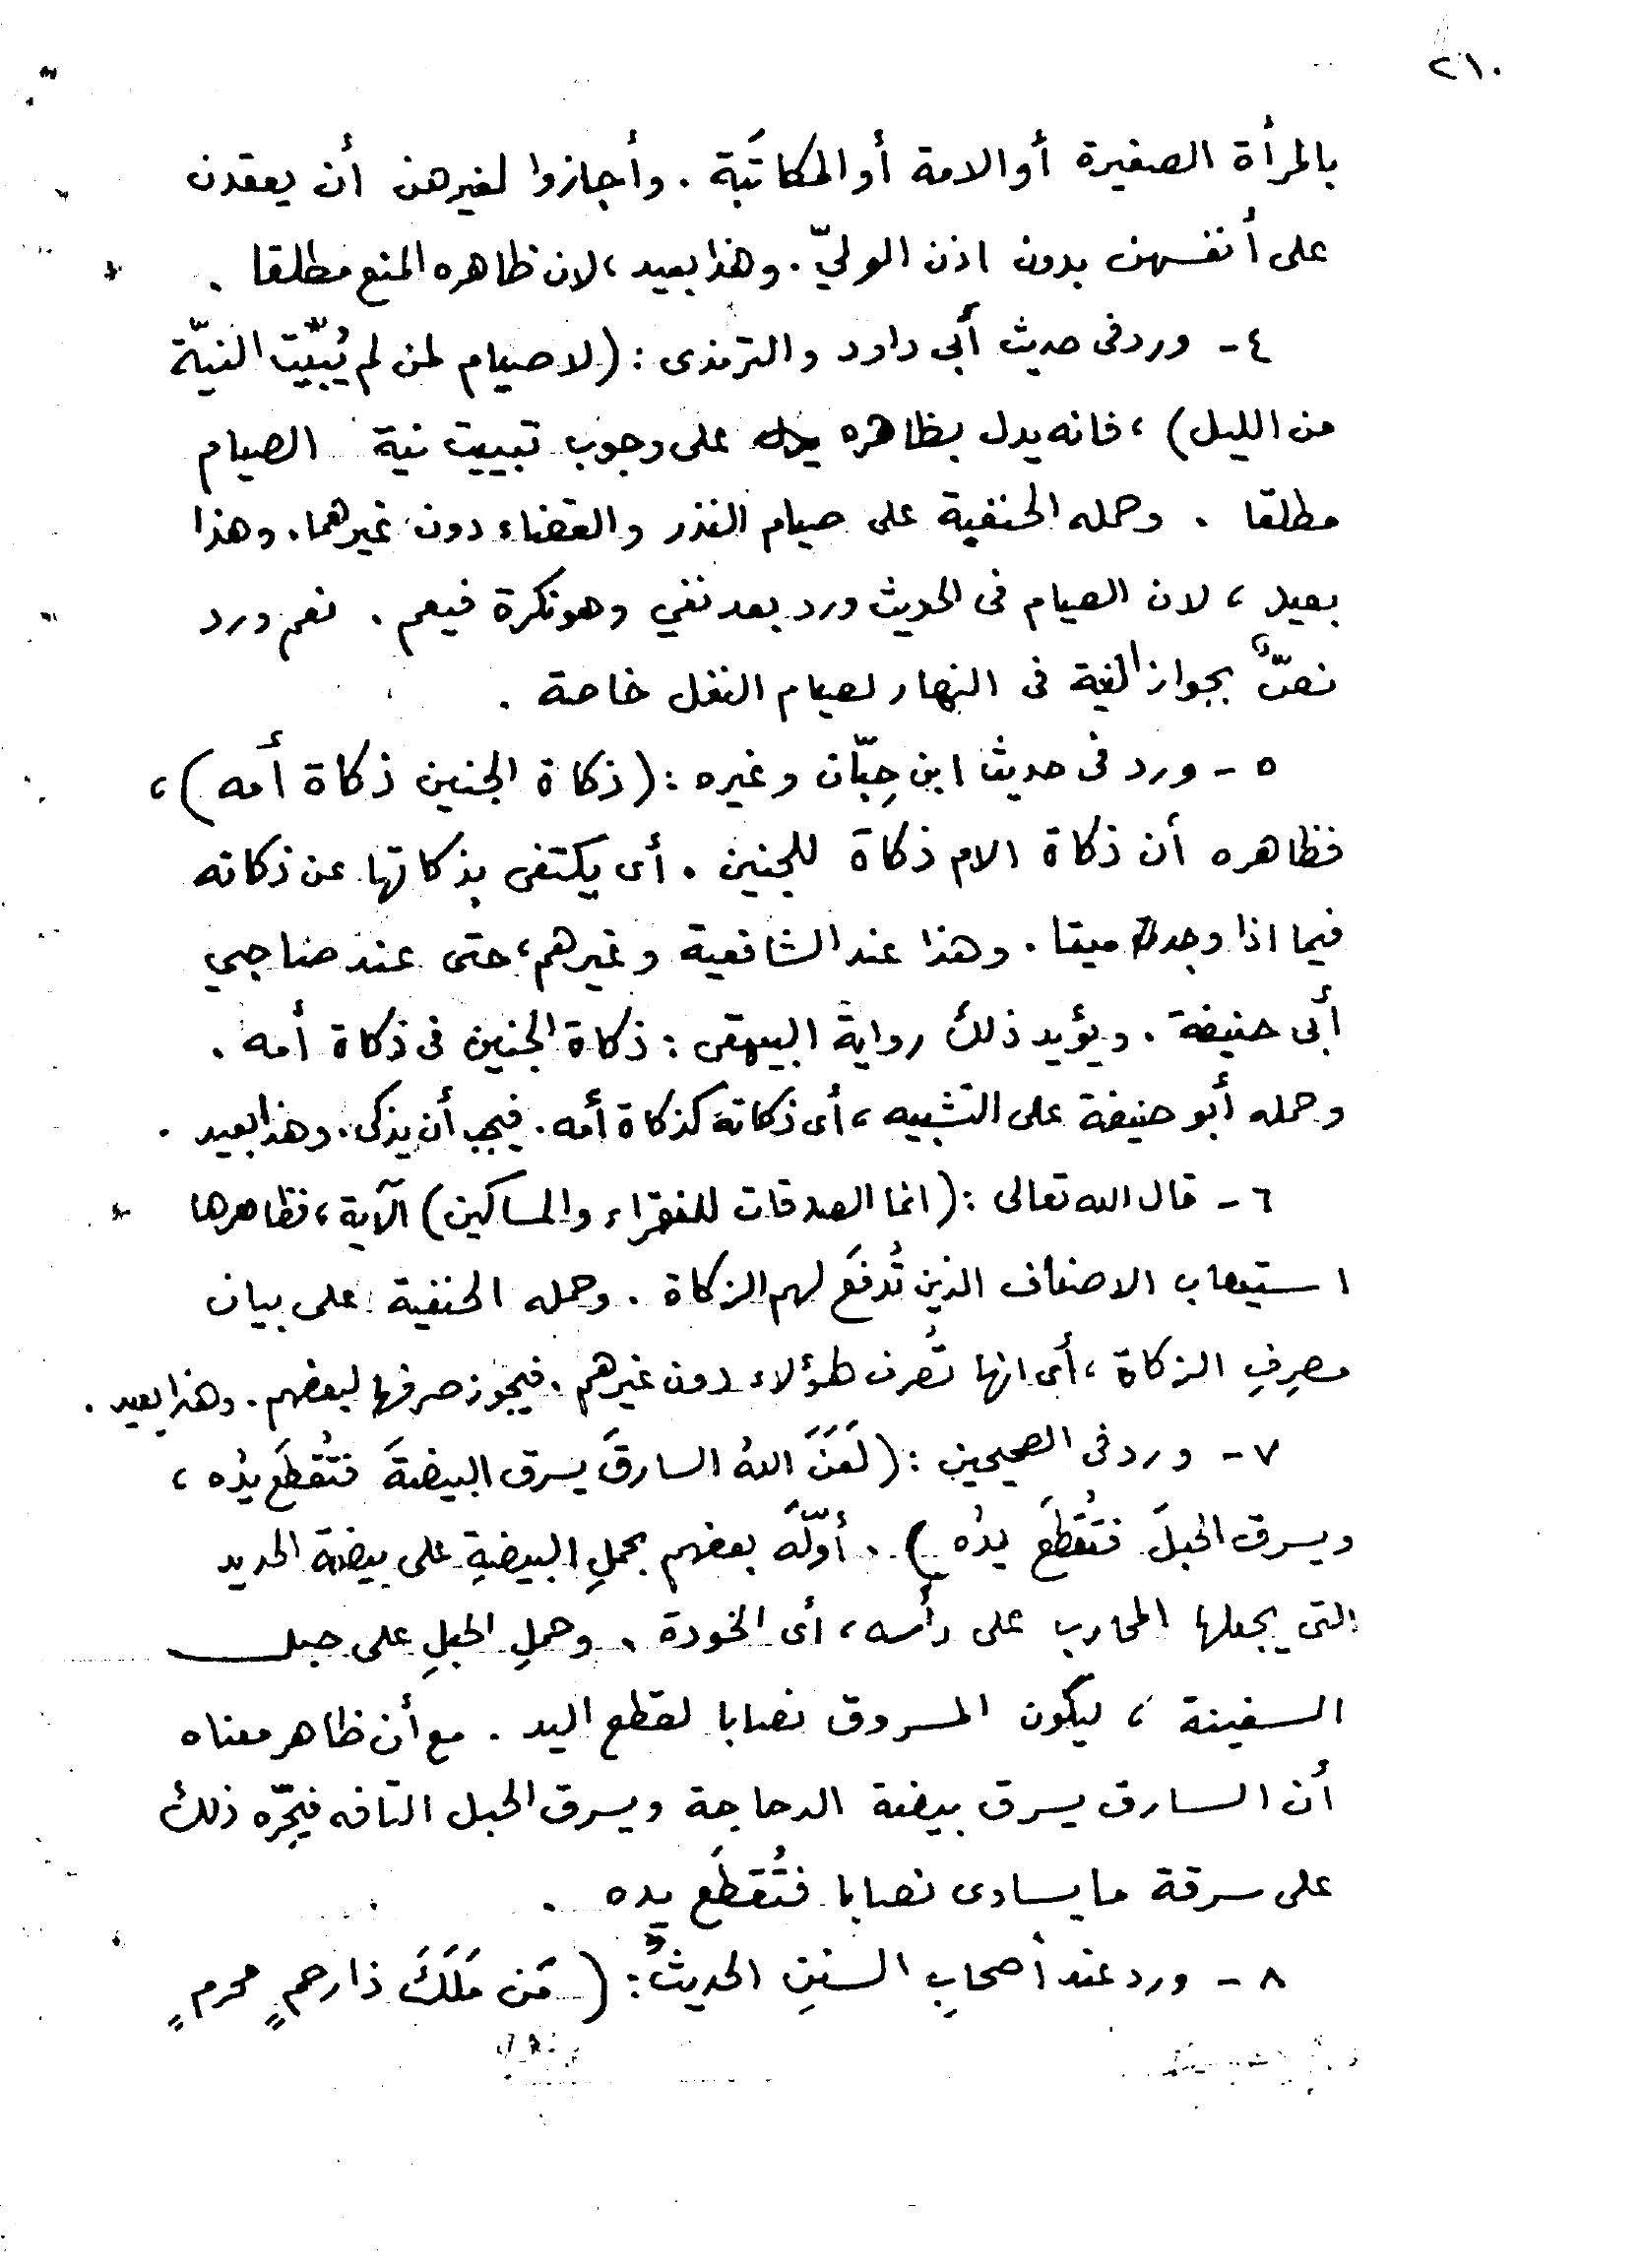 ٢١٠
بالمرأة الصغيرة أو الامة أو المكاتَبة . وأجازوا لغيرهن أن يعقدن
على أنفسهن بدون اذن الوليّ . وهذا بعيد ، لان ظاهره المنع مطلقا .
٤ - ورد فى حديث أبى داود والترمذى : (لا صيام لمن لم يُبيّت النيّة
من الليل) ، فانه يدل بظاهره على وجوب تبييت نية الصيام
مطلقا . وحمله الحنفية على صيام النذر والقضاء دون غيرهما . وهذا
بعيد ، لان الصيام فى الحديث ورد بعد نفي وهو نكرة فيعم . نعم ورد
نصٌّ بجواز النية فى النهار لصيام النفل خاصة .
٥ - ورد فى حديث ابن حِبّان وغيره : (ذكاة الجنين ذكاة أمه) ،
فظاهره أن ذكاة الام ذكاة للجنين . أى يكتفى بذكاتها عن ذكاته
فيما اذا وجد ميتا . وهذا عند الشافعية وغيرهم ، حتى عند صاحبي
أبى حنيفة . ويؤيد ذلك رواية البيهقى : ذكاة الجنين فى ذكاة أمه .
وحمله أبو حنيفة على التشبيه ، أى ذكاته كذكاة أمه . فيجب أن يذكى . وهذا بعيد .
٦ - قال الله تعالى : (انما الصدقات للفقراء والمساكين) الآية ، فظاهرها
استيعاب الاصناف الذين تُدفَع لهم الزكاة . وحمله الحنفية على بيان
مصرِفِ الزكاة ، أى انها تُصرف لهؤلاء دون غيرهم . فيجوز صرفها لبعضهم . وهذا بعيد .
٧ - ورد فى الصحيحين : (لَعَنَ اللهُ السارقَ يسرق البيضةَ فتُقطَع يدُه ،
ويسرق الحبلَ فتُقطَع يدُه ) . أوّلَه بعضهم بحملِ البيضةِ على بيضة الحديد
التى يجعلها المحارب على رأسه ، أى الخوذة . وحملِ الحبلِ على حبل
السفينة ، ليكون المسروق نصابا لقطع اليد . مع أن ظاهر معناه
أن السارق يسرق بيضة الدجاجة ويسرق الحبل التافه فيجرّه ذلك
على سرقة ما يساوى نصابا فتُقطَع يده .
٨ - ورد عند أصحابِ السننِ الحديثُ : ( مَن مَلَكَ ذا رحمٍ محرمٍ